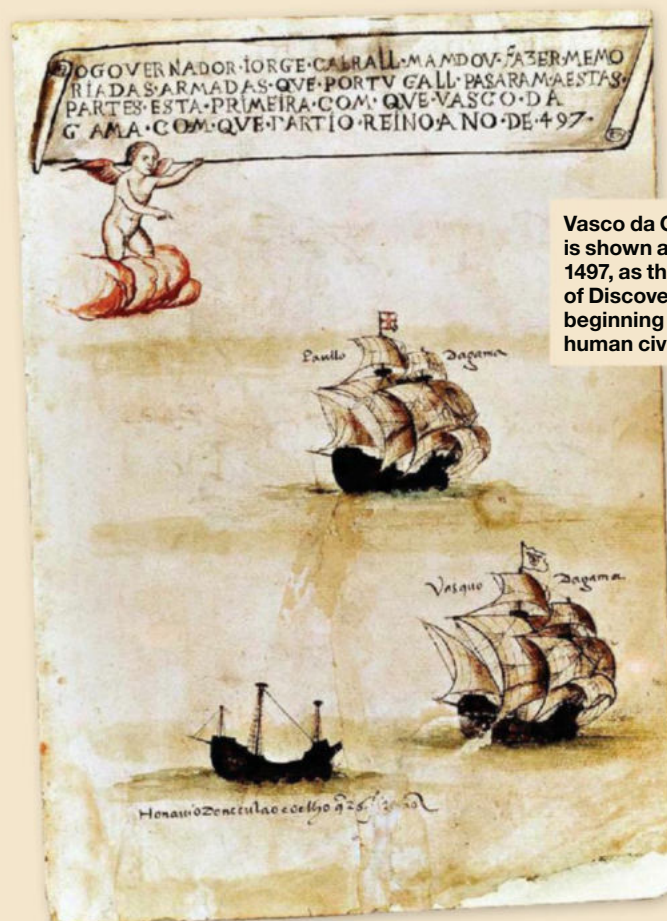 OGOVERNADOR·IORGE·CABRALL·MAMDOV·FAZER·MEMO
RIADAS·ARMADAS·QVE·PORTVGALL·PASARAM·AESTAS·
PARTES·ESTA·PRIMEIRA·COM·QVE·VASCO·DA
GAMA·COM·QVE·PARTIO·REINO·ANO·DE·497·
Vasco da
is shown
1497, as
of
beginning
human
Paullo Dagama
Vasquo Dagama
coelho